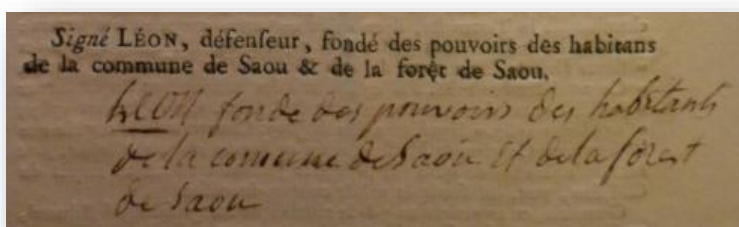 Signé LÉON, défenſeur, fondé des pouvoirs des habitans
de la commune de Saou & de la forêt de Saou.
LEON fonde des pouvoirs des habitants
de la comune de Saou et de la forest
de Saou